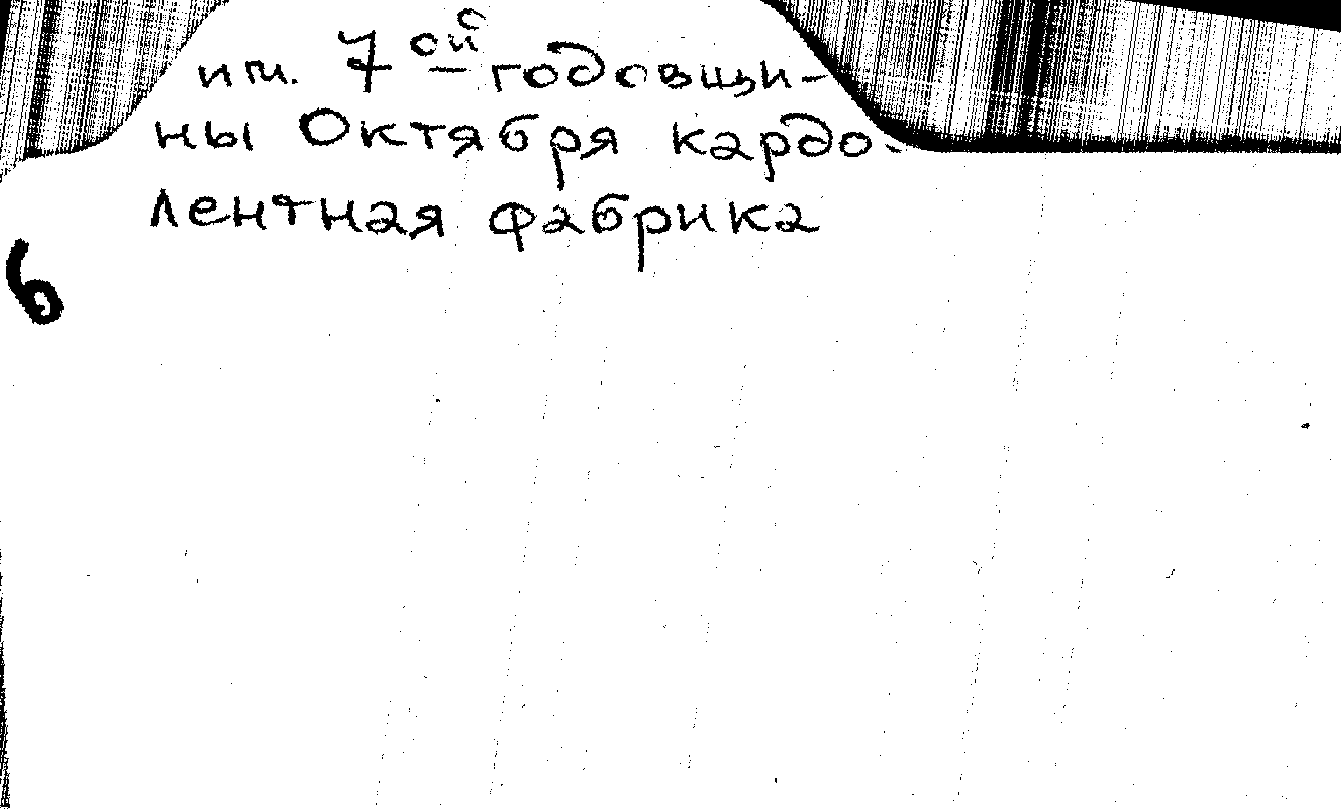 им. 7ой годовщи-
ны Октября кардо-
лентная фабрика
6